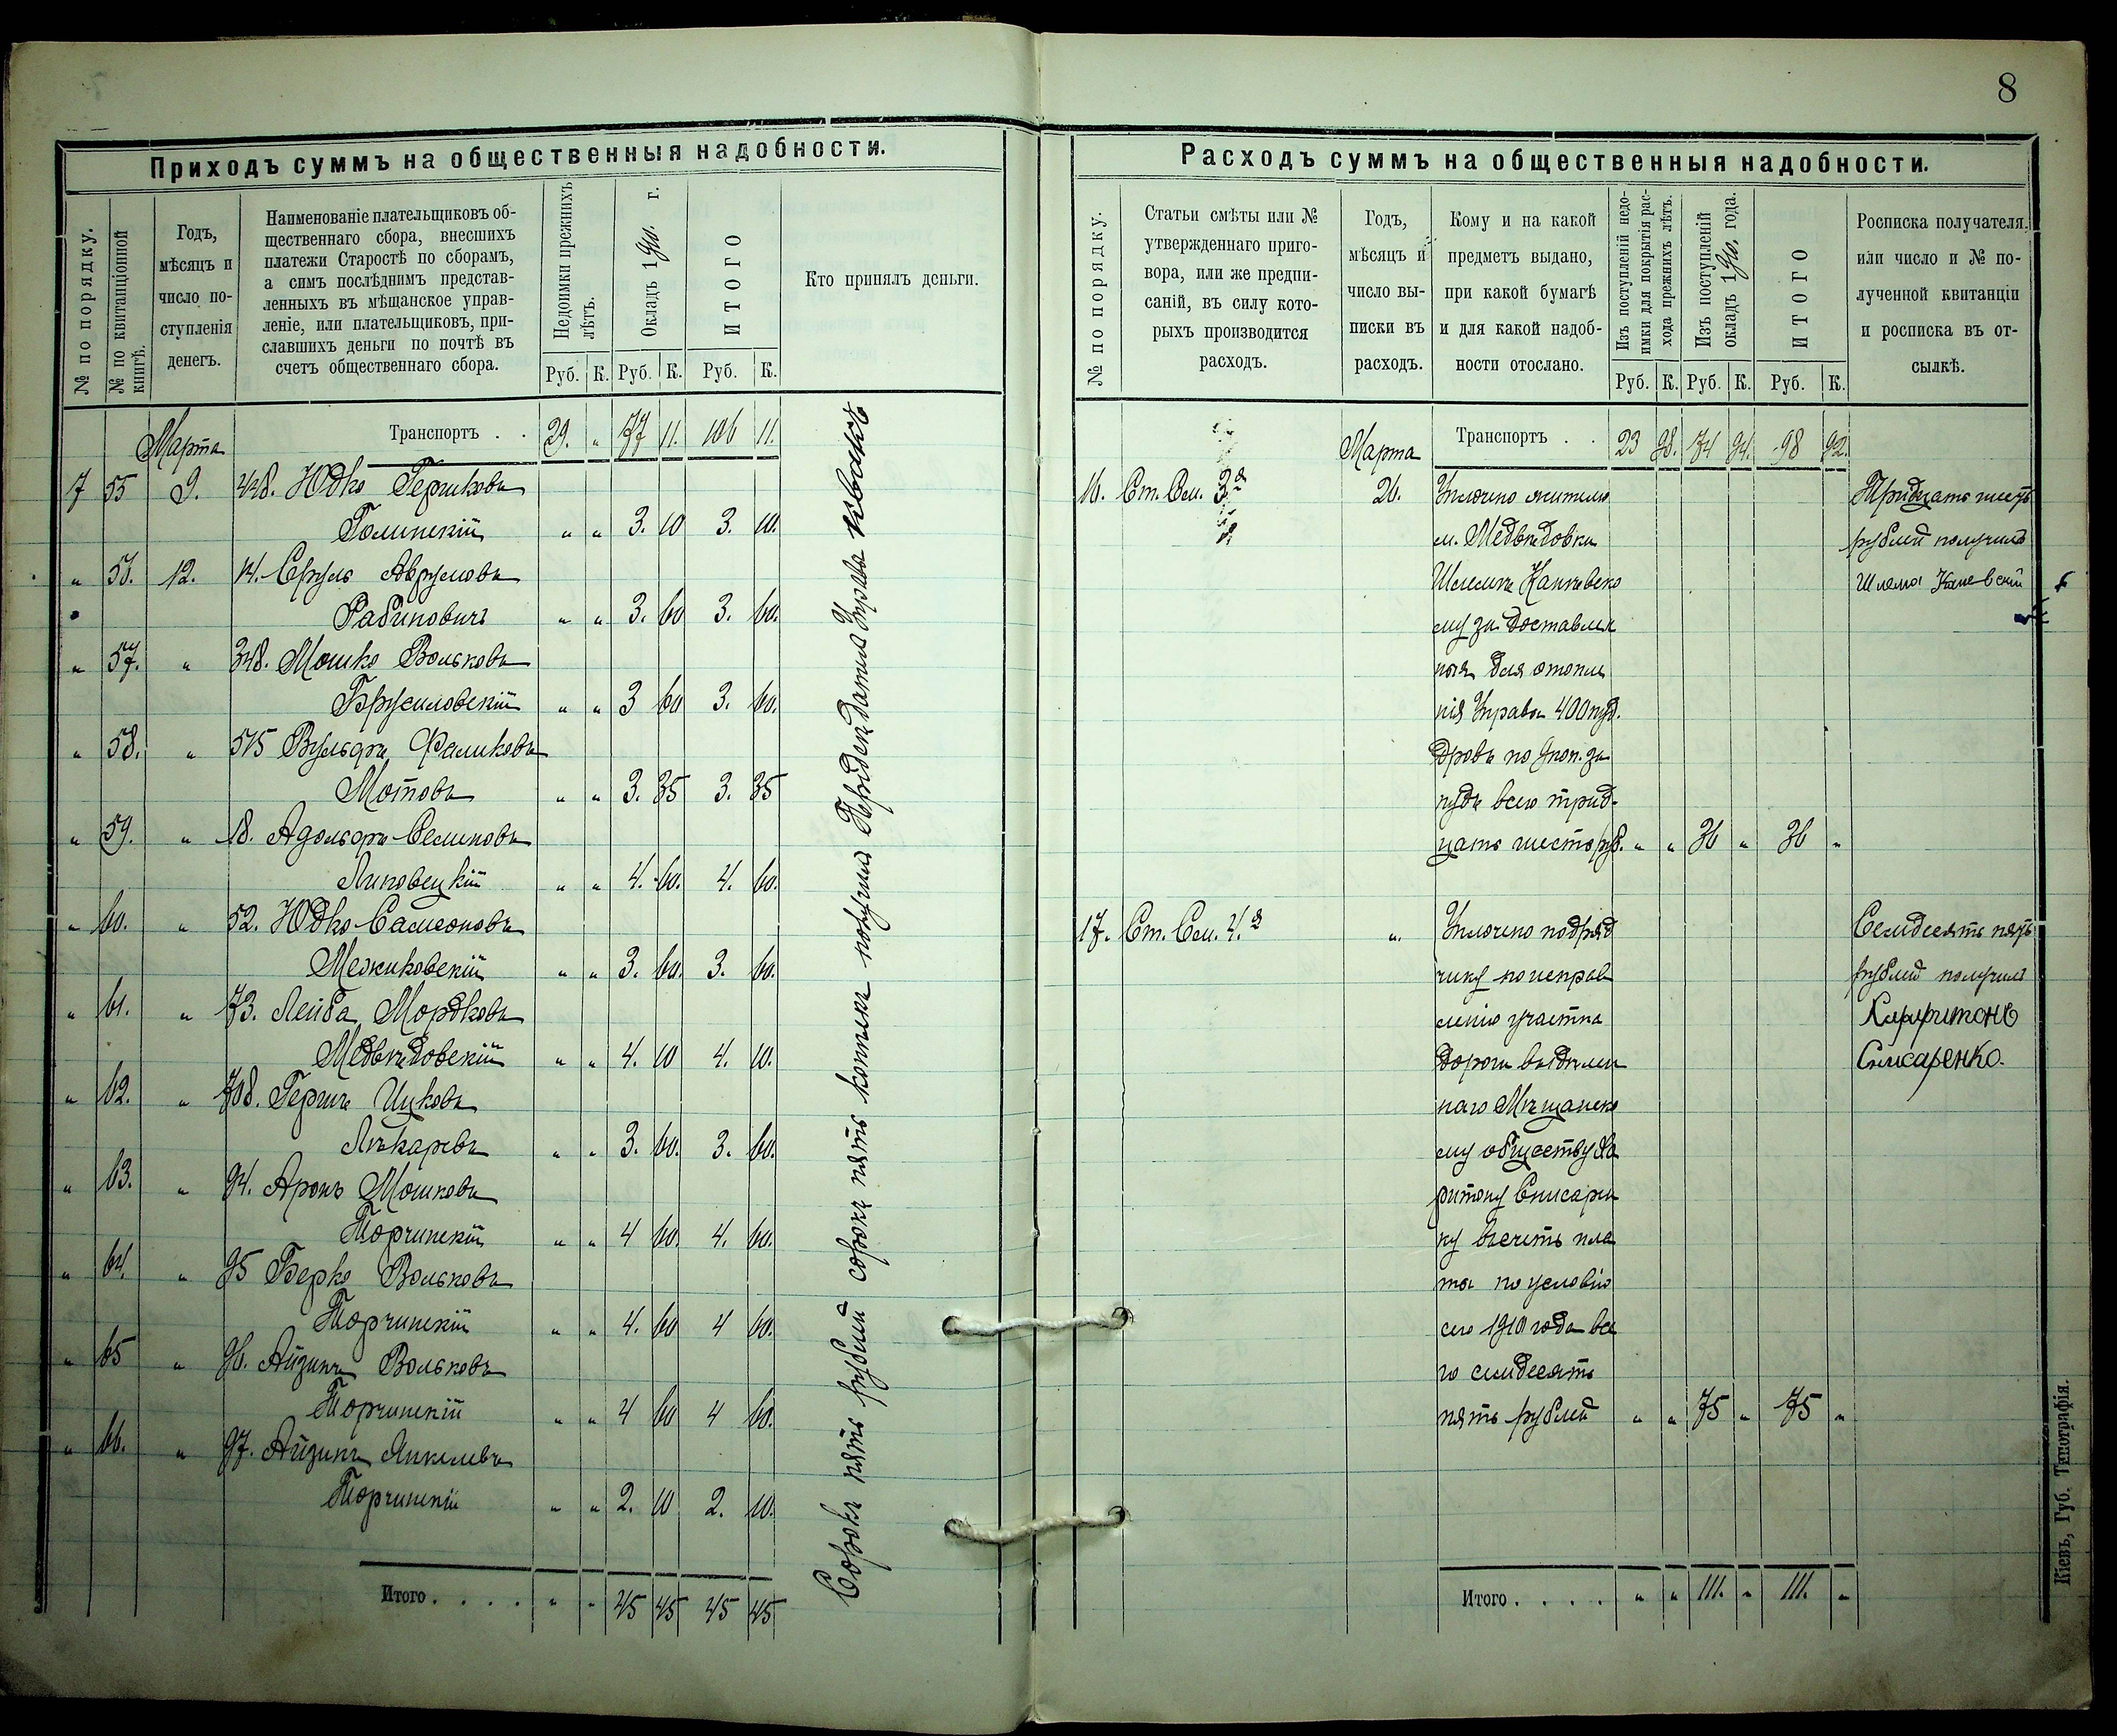 8
Приходъ суммъ на общественныя надобности.
№ по порядку.
№ по квитанціонной книгѣ.
Годъ,
мѣсяцъ и
число по-
ступленія
денегъ.
Наименованіе плательщиковъ об-
щественнаго сбора, внесшихъ
платежи Старостѣ по сборамъ,
а симъ послѣднимъ представ-
ленныхъ въ мѣщанское управ-
леніе, или плательщиковъ, при-
славшихъ деньги по почтѣ въ
счетъ общественнаго сбора.
Недоимки прежнихъ
лѣтъ.
Окладъ 1910. г.
ИТОГО
Руб. К. Руб. К. Руб. К.
Кто принялъ деньги.
Марта Транспортъ . . 29. „ 77 11. 106 11.
7 55 9. 428. Юдко Гершковъ
Голинскій „ „ 3. 10 3. 10.
„ 56. 12. 14. Сруль Аврумовъ
Рабиновичъ „ „ 3. 60 3. 60.
„ 57. „ 348. Мошко Вольковъ
Брусиловскій „ „ 3 60 3. 60.
„ 58. „ 515 Вульфъ Фаликовъ
Мотовъ „ „ 3. 35 3. 35
„ 59. „ 18. Адольфъ Семеновъ
Липовецкій „ „ 4. 60. 4. 60.
„ 60. „ 52. Юдко Самсоновъ
Межиковскій „ „ 3. 60. 3. 60.
„ 61. „ 73. Лейба Мордковъ
Медвѣдовскій „ „ 4. 10 4. 10.
„ 62. „ 708. Гершъ Ицковъ
Лѣкаревъ „ „ 3. 60. 3. 60.
„ 63. „ 94. Аронъ Мошковъ
Торчинскій „ „ 4 60. 4. 60.
„ 64. „ 95 Берко Вольковъ
Торчинскій „ „ 4. 60 4 60.
„ 65 „ 96. Айзикъ Вольковъ
Торчинскій „ „ 4 60 4 60.
„ 66. „ 97. Айзикъ Янкелевъ
Торчинскій „ „ 2. 10 2. 10.
Итого . . . . „ „ 45 45 45 45
Сорокъ пять рублей сорокъ пять копѣекъ получилъ Управы
Расходъ суммъ на общественныя надобности.
№ по порядку.
Статьи смѣты или №
утвержденнаго приго-
вора, или же предпи-
саній, въ силу кото-
рыхъ производится
расходъ.
Годъ,
мѣсяцъ и
число вы-
писки въ
расходъ.
Кому и на какой
предметъ выдано,
при какой бумагѣ
и для какой надоб-
ности отослано.
Изъ поступленій недо-
имки для покрытія рас-
хода прежнихъ лѣтъ.
Изъ поступленій
окладъ 1910. года.
ИТОГО
Руб. К. Руб. К. Руб. К.
Росписка получателя,
или число и № по-
лученной квитанціи
и росписка въ от-
сылкѣ.
Марта Транспортъ . . 23 98. 74 94. 98 92.
16. Ст. См. 3я 26. Уплочено жителю Тридцать шесть
м. Медвѣдовки рублей получилъ
Шлемѣ Каневско Шлема Каневскій
му за доставлен
ныя для отопле
нія Управы 400 пуд.
дровъ по 9 коп. за
пудъ всего трид-
цать шесть руб. „ „ 36 „ 36 „
17. Ст. См. 4.я „ Уплочено подряд Семдесять пять
чику по исправ рублей получилъ
ленію участка Харитонъ
дороги выдѣлен Слисаренко.
наго Мѣщанско
му обществу Ха
ритону Слисарен
ку въ счетъ пла
ты по условію
сего 1910 года все
го семдесять
пять рублей „ „ 75 „ 75 „
Итого . . . . „ „ 111. „ 111. „
Кіевъ, Губ. Типографія.